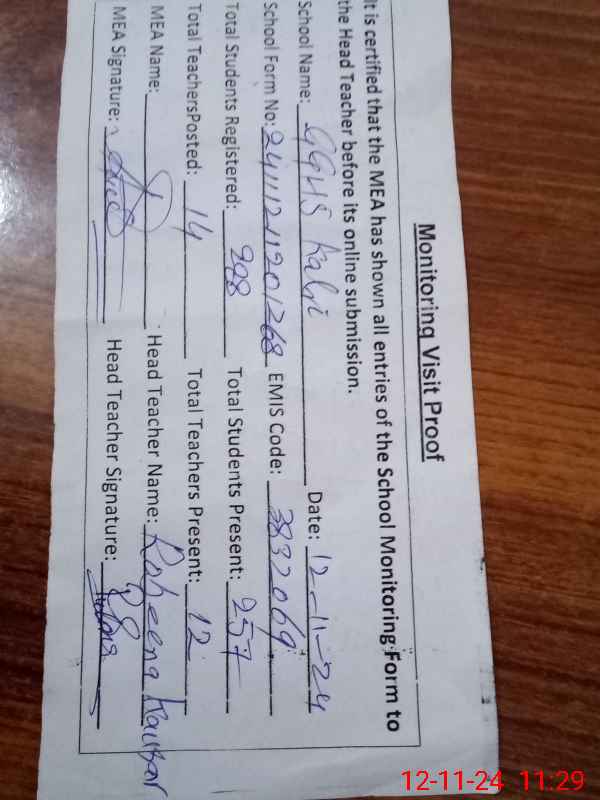 Monitoring Visit Proof
It is certified that the MEA has shown all entries of the School Monitoring Form to
the Head Teacher before its online submission.
School Name: GGHS Kalri Date: 12-11-24
School Form No: 24111211201268 EMIS Code: 3832069
Total Students Registered: 298 Total Students Present: 257
Total TeachersPosted: 14 Total Teachers Present: 12
MEA Name: Head Teacher Name: Raheena Kausar
MEA Signature: Head Teacher Signature:
12-11-24 11.29